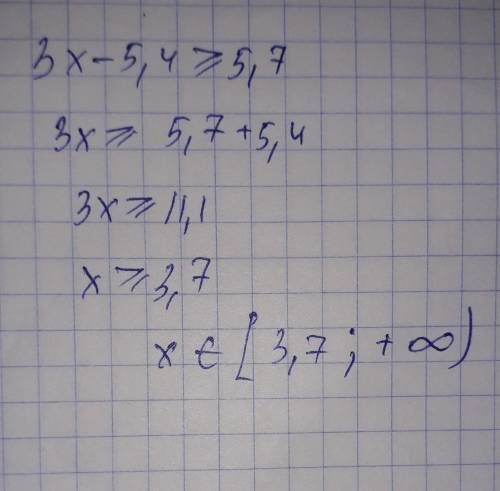 3x-5,4⩾5,7
3x⩾ 5,7+5,4
3x⩾11,1
x⩾3,7
x ∈ [3,7; +∞)